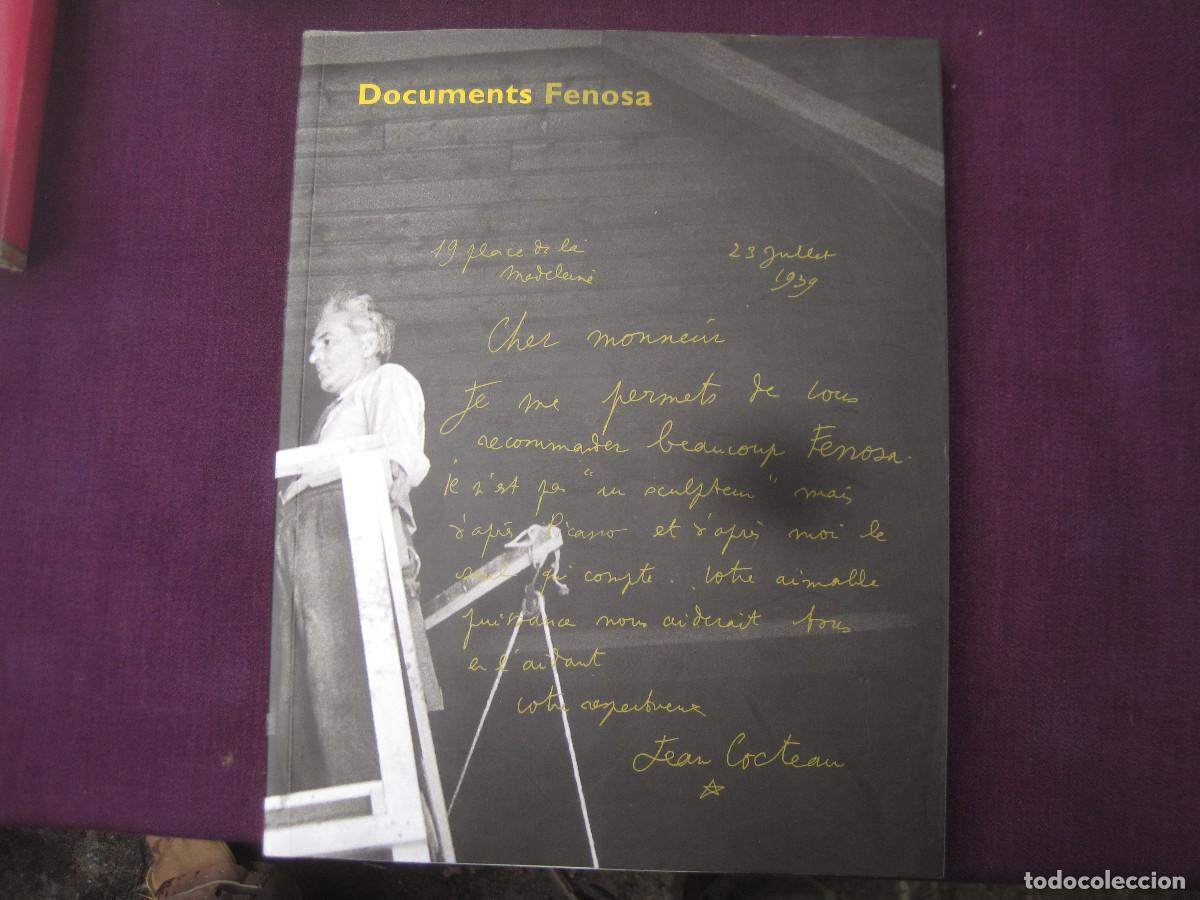 Documents Fenosa
19 place de la
Madeleine
23 Juillet
1939
Cher monsieur
Je me permets de vous
recommander beaucoup Fenosa.
n'est pas "un sculpteur" mais
d'après Picasso et d'après moi le
seul qui compte. Votre aimable
puissance nous aiderait tous
en l'aidant
votre respectueux
Jean Cocteau
todocoleccion